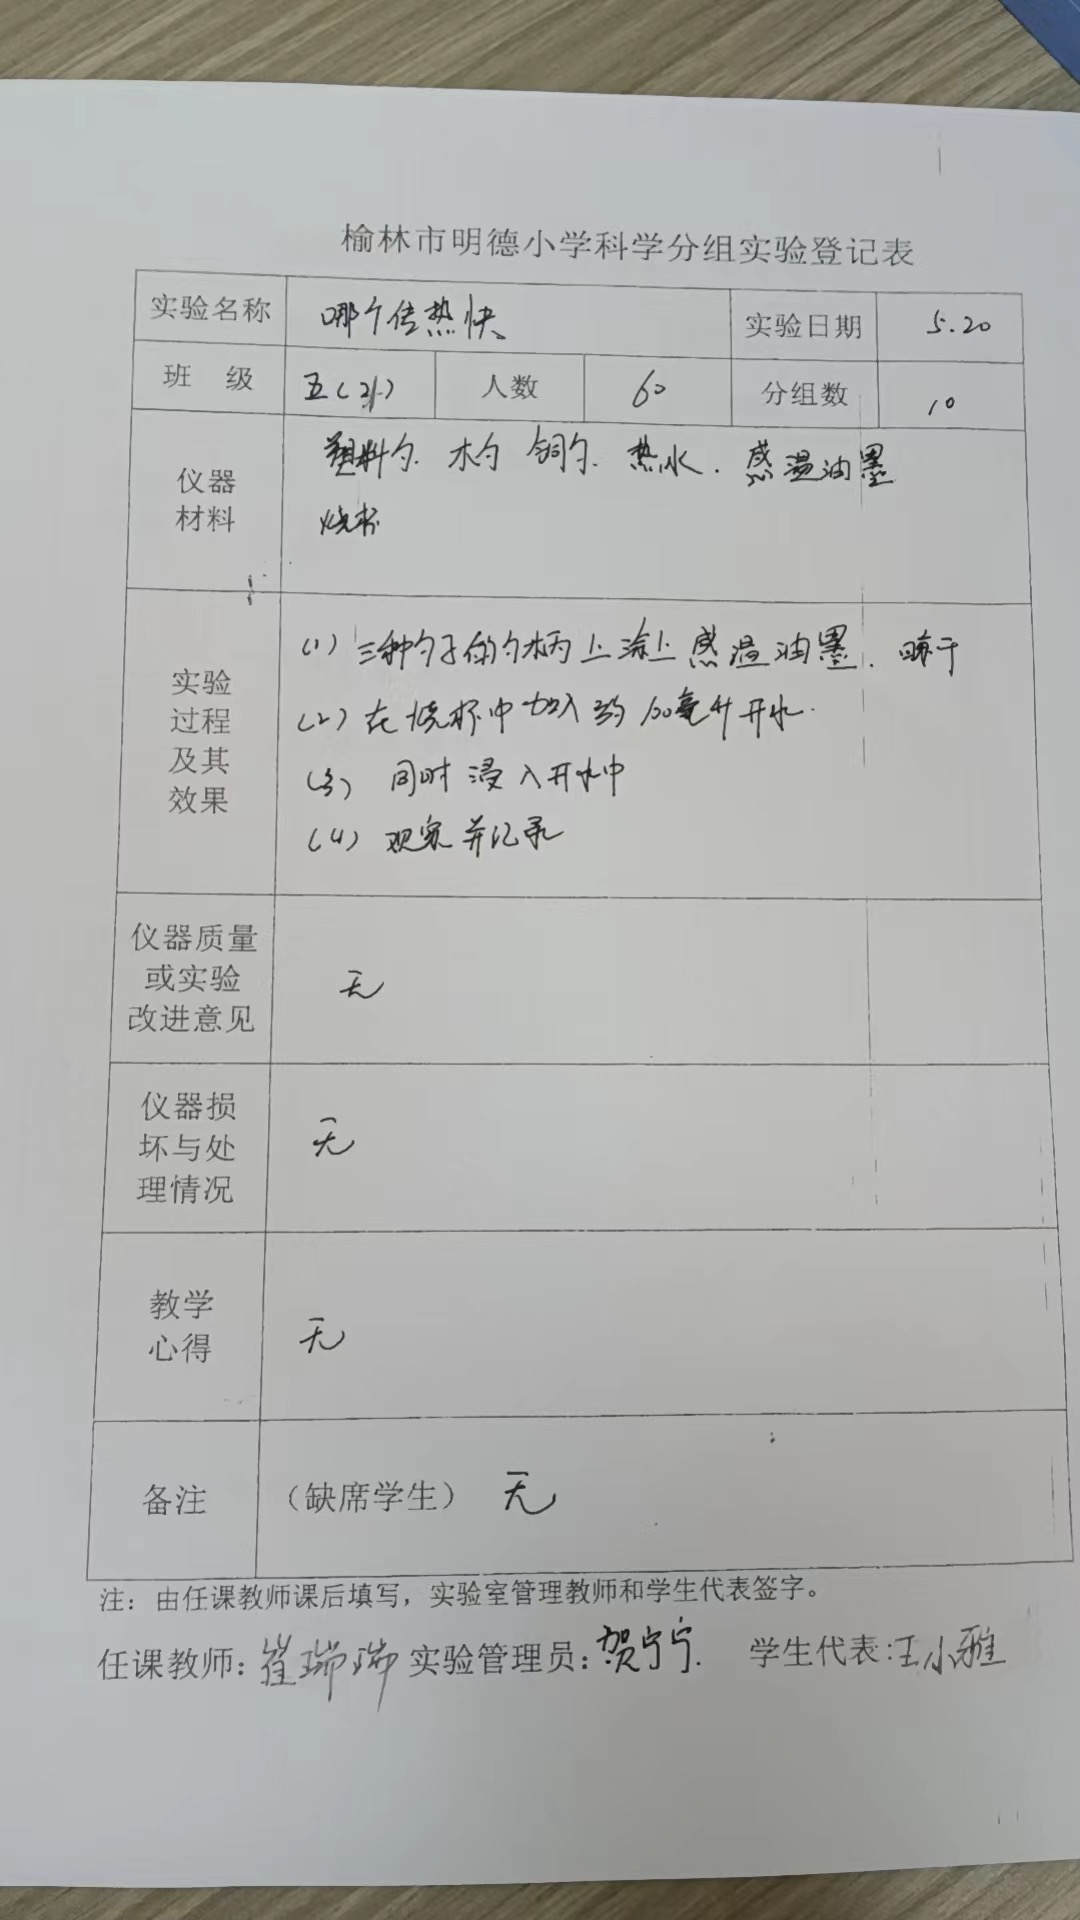 榆林市明德小学科学分组实验登记表
实验名称 哪个传热快 实验日期 5.20
班 级 五( ) 人数 60 分组数 10
仪器材料 塑料勺. 木勺 铜勺. 热水. 感温油墨
烧杯
实验过程及其效果
(1) 三种勺子的勺柄上涂上感温油墨. 晾干
(2) 在烧杯中加入约100毫升开水.
(3) 同时浸入开水中
(4) 观察并记录
仪器质量或实验改进意见 无
仪器损坏与处理情况 无
教学心得 无
备注 (缺席学生) 无
注：由任课教师课后填写，实验室管理教师和学生代表签字。
任课教师：崔瑞瑞 实验管理员：贺宁宁. 学生代表：王小雅